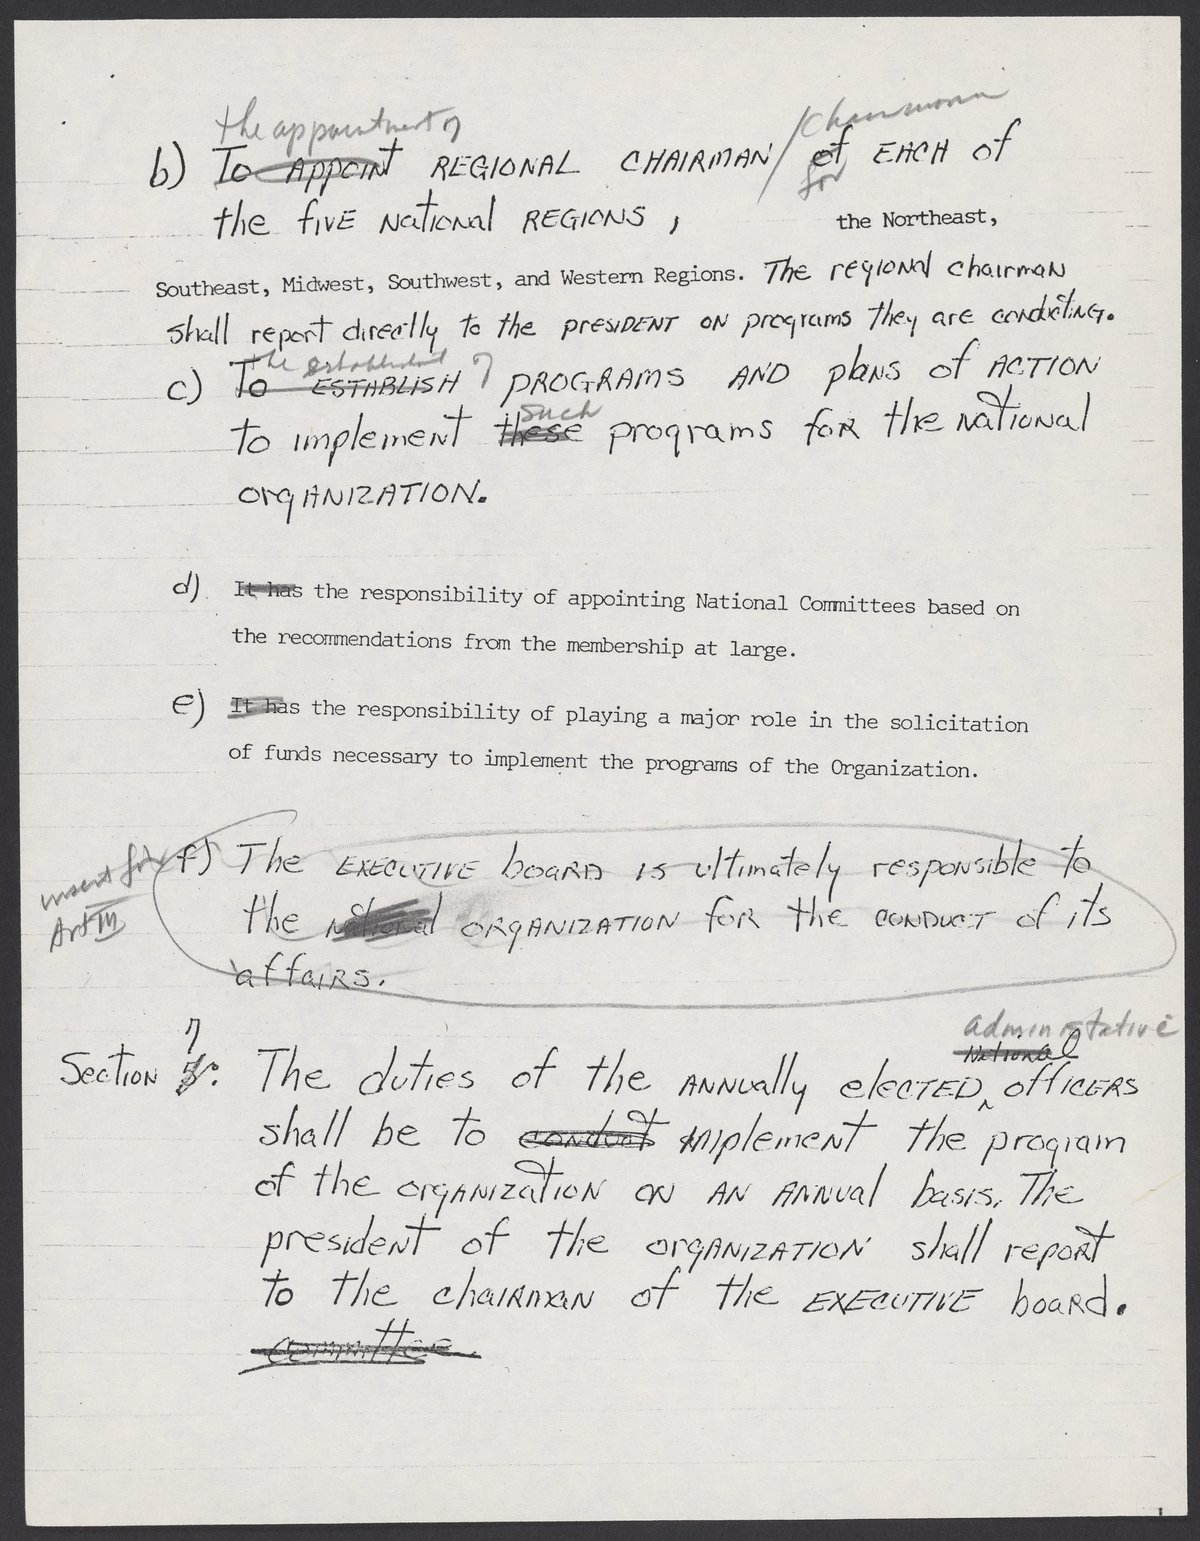 the appointment of /chairwoman
b) To APPOINT REGIONAL CHAIRMAN of EACH of
for
the five National REGIONS,
the Northeast,
Southeast, Midwest, Southwest, and Western Regions. The regional chairman
shall report directly to the president on programs they are conducting.
the establishment of
c) To ESTABLISH PROGRAMS AND plans of ACTION
such
to implement these programs for the National
organization.
d) It has the responsibility of appointing National Committees based on
the recommendations from the membership at large.
e) It has the responsibility of playing a major role in the solicitation
of funds necessary to implement the programs of the Organization.
insert
Art III
f) The EXECUTIVE board is ultimately responsible to
the national organization for the conduct of its
affairs.
7 administative
National
Section 5: The duties of the annually elected ^ officers
shall be to conduct implement the program
of the organization on an annual basis. The
president of the organization shall report
to the chairman of the EXECUTIVE board.
committee.